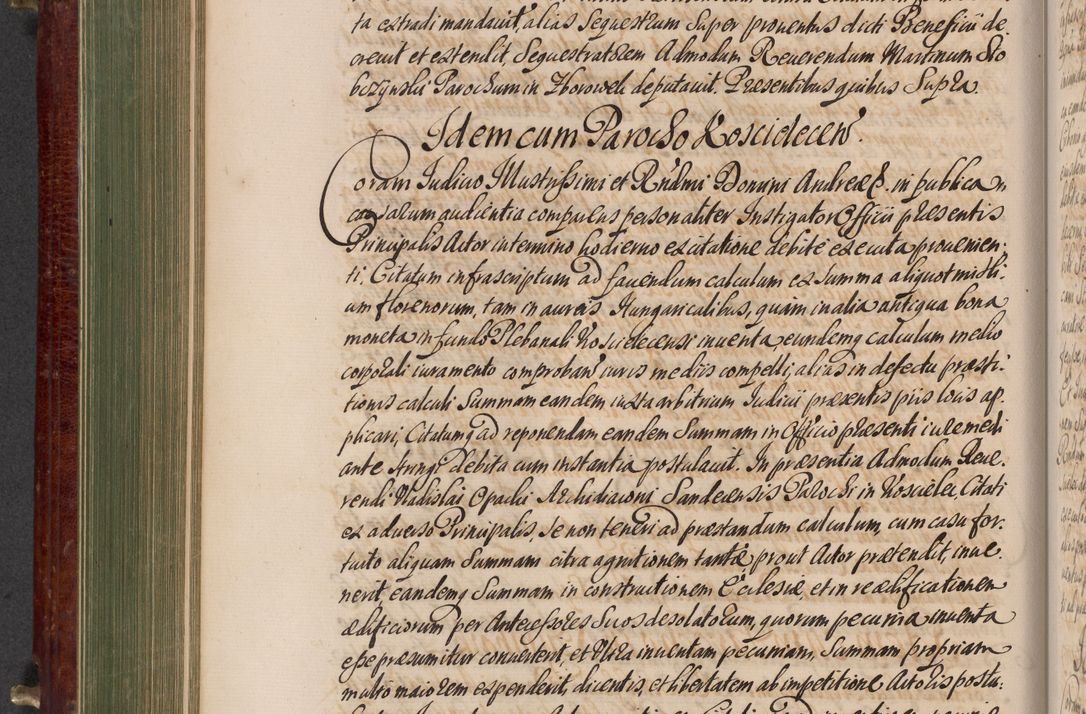 ta extradi mandavit, alias Sequestrum Super proventus dicti Beneficii de
crevit et extendit, Sequestratorem Admodum Reverendum Martinum Sto
bczynski Parochum in Zborowek deputavit. Præsentibus quibus Supra.
Idem cum Parocho Koscielecen̄.
Coram Iudicio Illustrissimi et Rn̄dmi Domini Andreæ &. in publica
causarum audientia comparens personaliter Instigator Officii præsentis
Principalis Actor in termino hodierno ex citatione debite executa provenien-
ti, Citatum infrascriptum ad faciendum calculum ex Summa aliquot milli-
um florenorum, tam in aureis Hungaricalibus, quam in alia antiqua bona
moneta in fundo Plebanali Koscielecensi inventa, eundemq calculum medio
corporali iuramento comproban̄ iuris mediis compelli, alias in defectu præsti-
tionis calculi Summam eandem iuxta arbitrium Iudicii præsentis piis locis ap-
plicari, Citatumq ad reponendam eandem Summam in Officio præsenti iure medi
ante stringi debita cum instantia postulavit. In præsentia Admodum Reve-
rendi Vladislai Opacki Archidiaconi Sandecensis Parochi in Koscielec, Citati
ex adverso Principalis, se non teneri ad præstandum calculum, cum casu for-
tuito aliquam Summam citra agnitionem tantæ prout Actor prætendit, inve-
nerit, eandemq Summam in constructionem Ecclesiæ et in reædificationem
ædificiorum per Antecessores Suos desolatorum, quorum pecunia inventa
esse præsumitur converterit, et Ultra inventam pecuniam, Summam propriam
multo maiorem expenderit, dicentis, et libertatem ab impetitione Actoris postu-